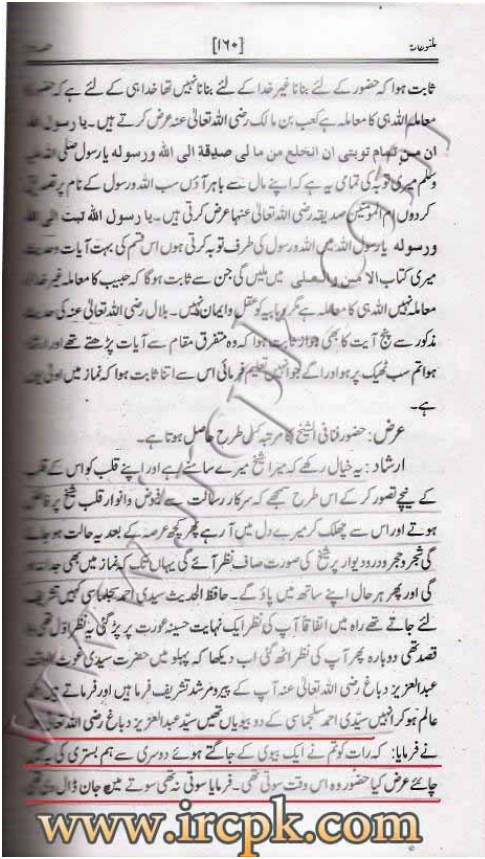 ملفوظات [۱۶۰] حصہ
ثابت ہوا کہ حضور کے لئے بنانا غیر خدا کے لئے بنانا نہیں تھا خدا ہی کے لئے ہے کہ حضور کا
معاملہ اللہ ہی کا معاملہ ہے کعب بن مالک رضی اللہ تعالیٰ عنہ عرض کرتے ہیں۔ یا رسول اللہ
ان من تمام توبتی ان انخلع من ما لی صدقة الی الله ورسوله یا رسول صلی اللہ علیہ
وسلم میری توبہ کی تمامی یہ ہے کہ اپنے مال سے باہر آؤں سب اللہ و رسول کے نام پر تصدیق
کردوں ام المومنین صدیقہ رضی اللہ تعالیٰ عنہا عرض کرتی ہیں۔ یا رسول الله تبت الی الله
ورسوله یا رسول اللہ میں اللہ و رسول کی طرف توبہ کرتی ہوں اس قسم کی بہت آیات وحدیث
میری کتاب الامن والعلی میں ملیں گی جن سے ثابت ہوگا کہ حبیب کا معاملہ غیر خدا کا
معاملہ نہیں اللہ ہی کا معاملہ ہے مگر وہابیہ کو عقل و ایمان نہیں۔ بلال رضی اللہ تعالیٰ عنہ کی حدیث
مذکور سے پنج آیت کا بھی جواز ثابت ہوا کہ وہ متفرق مقام سے آیات پڑھتے تھے اور ارشاد
ہوا تم سب ٹھیک پر ہو اور آگے جو انہیں تعلیم فرمائی اس سے اتنا ثابت ہوا کہ نماز میں اولیٰ یوں
ہے۔
عرض: حضور فنا فی الشیخ کا مرتبہ کس طرح حاصل ہوتا ہے۔
ارشاد: یہ خیال رکھے کہ میرا شیخ میرے سامنے ہے اور اپنے قلب کو اس کے قلب
کے نیچے تصور کر کے اس طرح سمجھے کہ سرکار رسالت سے فیوض و انوار قلب شیخ پر فائض
ہوتے اور اس سے چھلک کر میرے دل میں آ رہے پھر کچھ عرصہ کے بعد یہ حالت ہو جائے
گی شجر و حجر و درو دیوار پر شیخ کی صورت صاف نظر آئے گی یہاں تک کہ نماز میں بھی جدا نہ ہو
گی اور پھر ہر حال اپنے ساتھ میں پاؤ گے۔ حافظ الحدیث سیدی احمد سجلماسی کہیں تشریف
لئے جاتے تھے راہ میں اتفاقاً آپ کی نظر ایک نہایت حسینہ عورت پر پڑ گئی یہ نظر اول تھی بلا
قصد تھی دوبارہ پھر آپ کی نظر اٹھ گئی اب دیکھا کہ پہلو میں حضرت سیدی غوث الوقت
عبدالعزیز دباغ رضی اللہ تعالیٰ عنہ آپ کے پیرومرشد تشریف فرما ہیں اور فرماتے ہیں احمد
عالم ہو کر انہیں سیدی احمد سجلماسی کے دو بیویاں تھیں سید عبدالعزیز دباغ رضی اللہ تعالیٰ عنہ
نے فرمایا: کہ رات کو تم نے ایک بیوی کے جاگتے ہوئے دوسری سے ہم بستری کی یہ نہیں
چاہئے عرض کیا حضور وہ اس وقت سوتی تھی۔ فرمایا سوتی نہ تھی سوتے میں جان ڈال دی تھی
www.ircpk.com